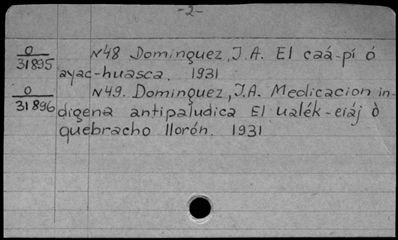 -2-
0/31895 N48 Dominguez, J.A. El caá-pí ó
ayac-huasca. 1931
0/31896 N49. Dominguez, J.A. Medicacion in-
digena antipaludica El ualék-eiáj ò
quebracho llorón. 1931